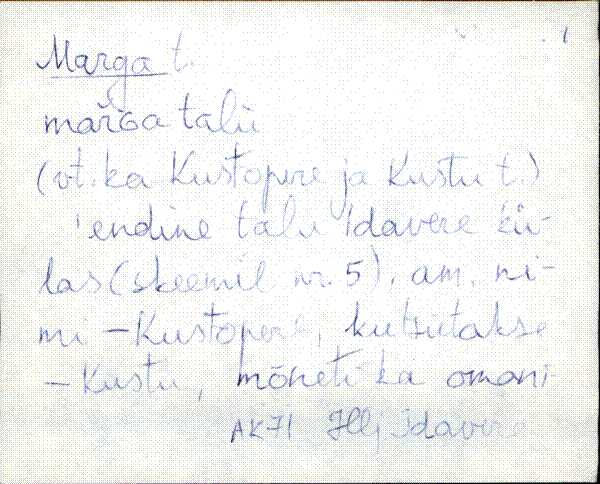 1
Marga t.
mařGa talu
(vt. ka Kustopere ja Kustu t.)
'endine talu Idavere kü-
las (skeemil nr. 5), am. ni-
mi - Kustopere, kutsutakse
- Kustu, mõneti ka omani-
AK71 Hlj Idavere